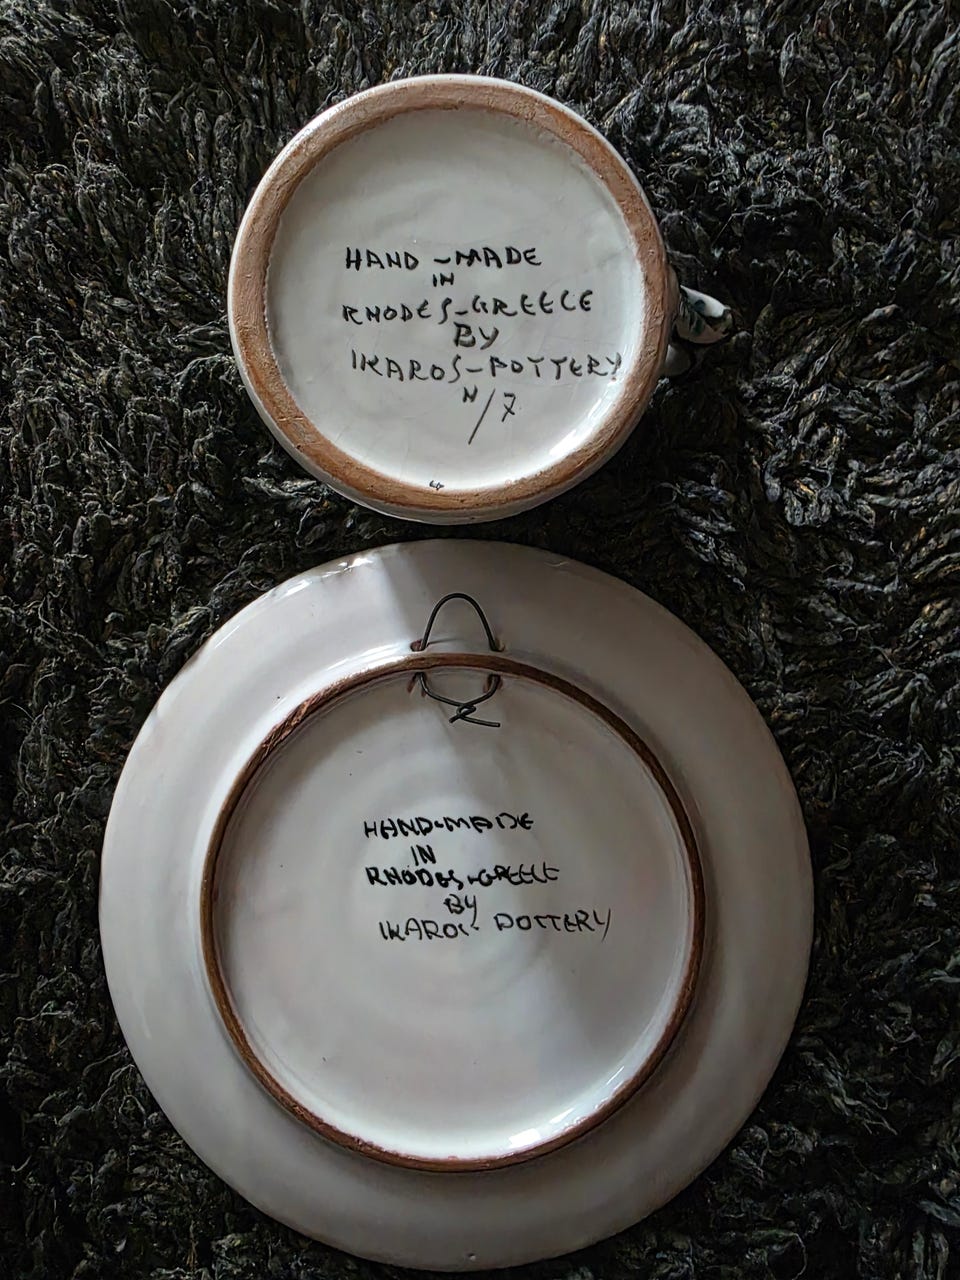 HAND-MADE
IN
RHODES-GREECE
BY
IKAROS-POTTERY
N/7
HAND-MADE
IN
RHODES-GREECE
BY
IKAROS-POTTERY